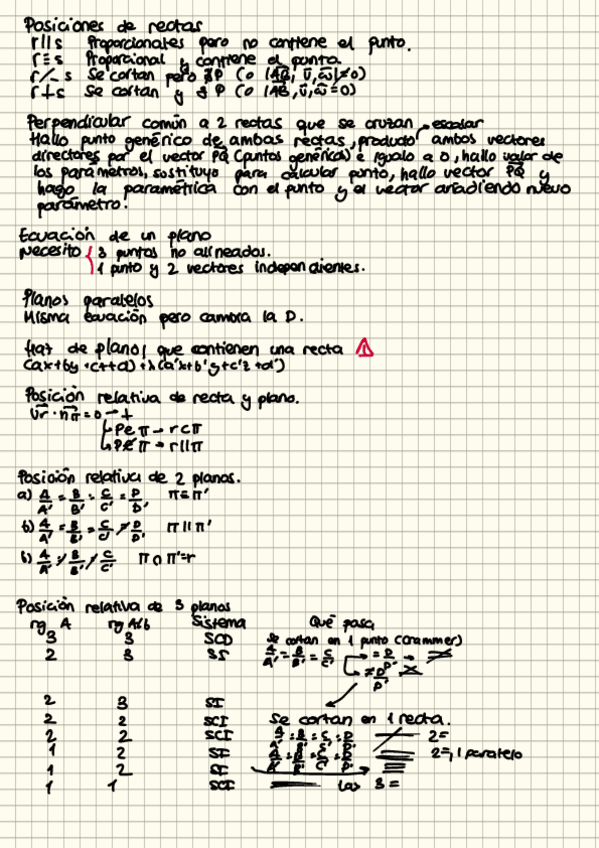 Posiciones de rectas
r || s Proporcionales pero no contiene el punto.
r ≡ s Proporcional y contiene el punto
r s Se cortan pero ∄ P (o |AB, u, w| ≠ 0)
r s Se cortan y ∃ P (o |AB, u, w = 0)
Perpendicular común a 2 rectas que se cruzan
escalar
Hallo punto genérico de ambas rectas, producto ambos vectores
directores por el vector PQ (puntos genéricos) e igualo a 0, hallo valor de
los parámetros, sustituyo para calcular punto, hallo vector PQ y
hago la paramétrica con el punto y el vector añadiendo nuevo
parámetro.
Ecuación de un plano
Necesito { 3 puntos no alineados.
1 punto y 2 vectores independientes.
Planos paralelos
Misma ecuación pero cambia la D.
Haz de planos que contienen una recta
(ax+by+cz+d)+λ(a'x+b'y+c'z+d')
Posición relativa de recta y plano.
ur · nπ = 0
P ∈ π → r ⊂ π
P ∉ π → r || π
Posición relativa de 2 planos.
a) A/A' = B/B' = C/C' = D/D' π ≡ π'
b) A/A' = B/B' = C/C' ≠ D/D' π || π'
A/A' ≠ B/B' ≠ C/C' π ∩ π' = r
Posición relativa de 3 planos
rg A rg A/b Sistema Qué pasa
3 3 SCD Se cortan en 1 punto (Crammer)
2 3 SI A/A' = B/B' = C/C' = D/D'
≠ D/D'
2 3 SI
2 2 SCI Se cortan en 1 recta.
2 2 SCI A/A' = B/B' = C/C' = D/D' 2=
1 2 SI A/A' = B/B' = C/C' = D/D' 2=, 1 paralelo
1 2 SI
1 1 SCI las 3 =